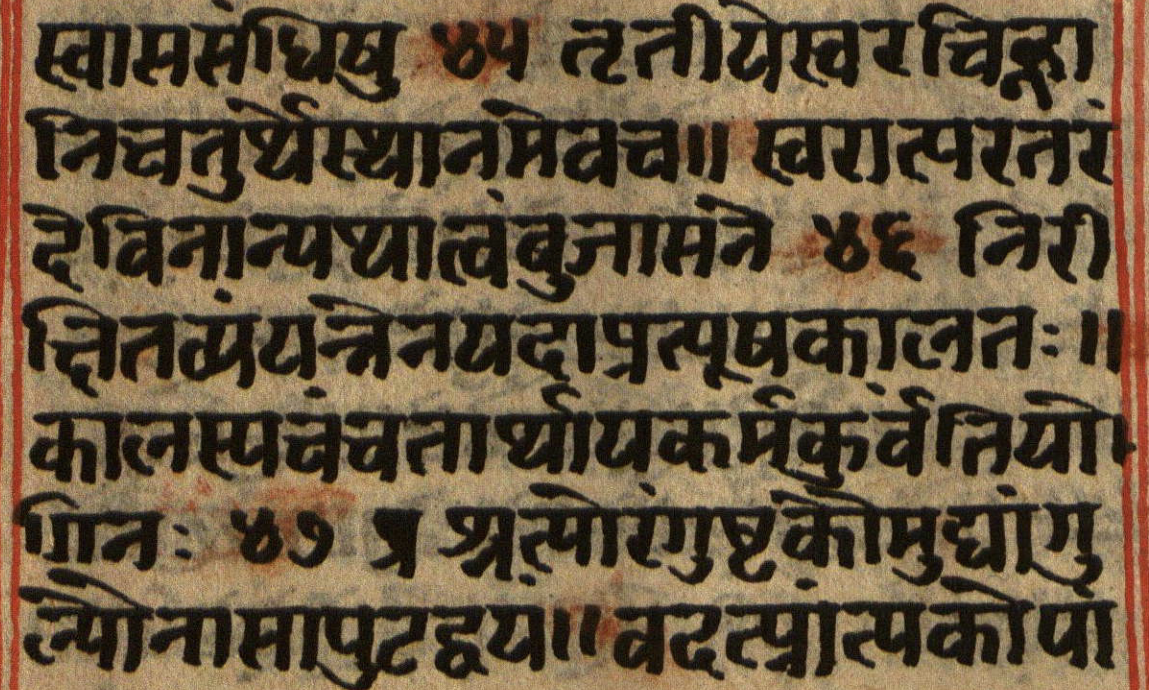 स्वाससंधिषु ४५ तृतीयेस्वरचिह्ना
निचतुर्थेस्थानमेवच॥ स्वरात्परतरं
देविनान्यथात्वंबुजासने ४६ निरी
क्षितव्यंयत्नेनयदाप्रत्यूषकालतः॥
कालस्यचंचतार्थायकर्मकुर्वंतियो
गिनः ४७ प्र श्रुत्योरंगुष्टकौमुद्यांगु
ल्योनासापुटद्वय॥ वदत्प्रांत्यकोपां